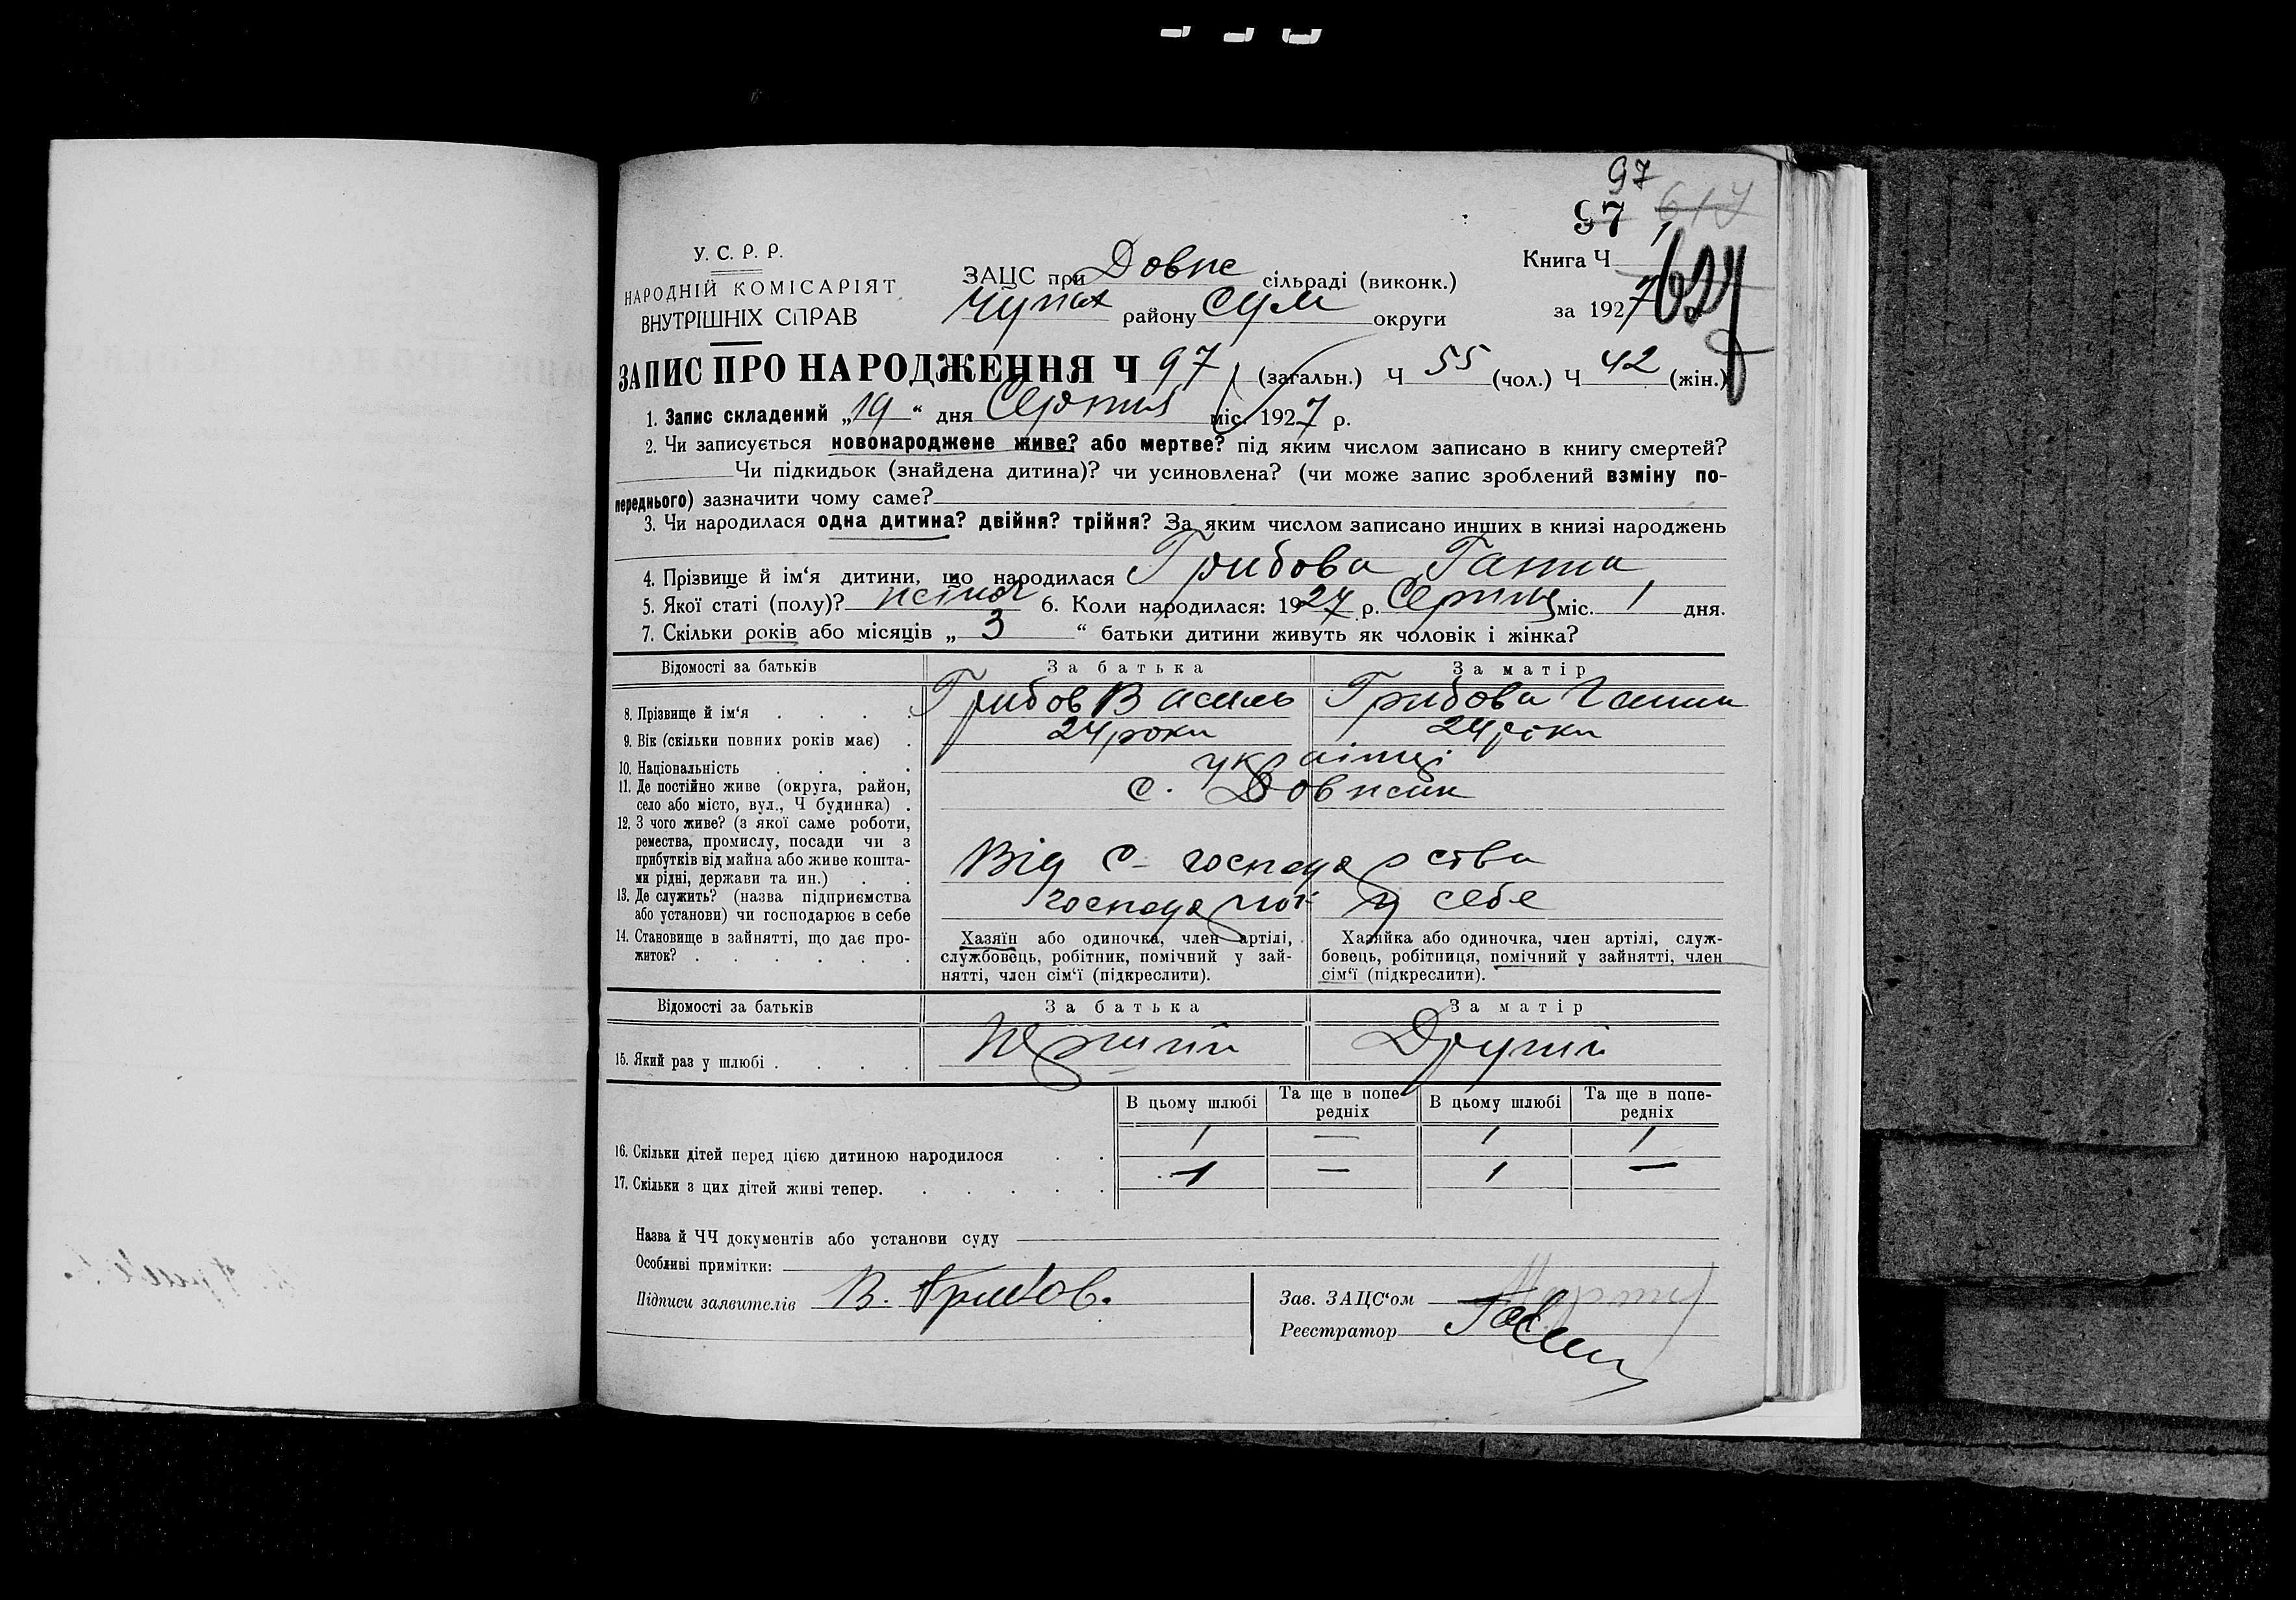 97
97 617
У. С. Р. Р.
НАРОДНІЙ КОМІСАРІЯТ
ВНУТРІШНІХ СПРАВ
ЗАЦС при Довж сільраді (виконк.)
Чупах району Сум округи
Книга Ч 1
627
за 1927
ЗАПИС ПРО НАРОДЖЕННЯ Ч 97 (загальн.) Ч 55 (чол.) Ч 42 (жін.)
1. Запис складений „19“ дня Серпня міс. 1927 р.
2. Чи записується новонароджене живе? або мертве? під яким числом записано в книгу смертей?
Чи підкидьок (знайдена дитина)? чи усиновлена? (чи може запис зроблений взміну по-
переднього) зазначити чому саме?
3. Чи народилася одна дитина? двійня? трійня? За яким числом записано инших в книзі народжень
4. Прізвище й ім‘я дитини, що народилася Грибова Ганна
5. Якої статі (полу)? жіноч 6. Коли народилася: 1927 р. Серпня міс. 1 дня.
7. Скільки років або місяців „ 3 “ батьки дитини живуть як чоловік і жінка?
Відомості за батьків За батька За матір
8. Прізвище й ім‘я Грибов Василь Грибова Ганна
9. Вік (скільки повних років має) 24 роки 24 роки
10. Національність українці
11. Де постійно живе (округа, район,
село або місто, вул., Ч будинка) с. Довжик
12. З чого живе? (з якої саме роботи,
ремества, промислу, посади чи з
прибутків від майна або живе кошта-
ми рідні, держави та ин.) Від с-господарства
13. Де служить? (назва підприємства
або установи) чи господарює в себе господарює у себе
14. Становище в зайнятті, що дає про-
житок?
Хазяїн або одиночка, член артілі,
службовець, робітник, помічний у зай-
нятті, член сім‘ї (підкреслити).
Хазяйка або одиночка, член артілі, служ-
бовець, робітниця, помічний у зайнятті, член
сім‘ї (підкреслити).
Відомості за батьків За батька За матір
15. Який раз у шлюбі Перший Другий
В цьому шлюбі Та ще в попе-редніх В цьому шлюбі Та ще в попе-редніх
16. Скільки дітей перед цією дитиною народилося 1 — 1 1
17. Скільки з цих дітей живі тепер. 1 — 1 —
Назва й ЧЧ документів або установи суду
Особливі примітки:
Підписи заявителів В. Грибов.
Зав. ЗАЦС‘ом
Реєстратор